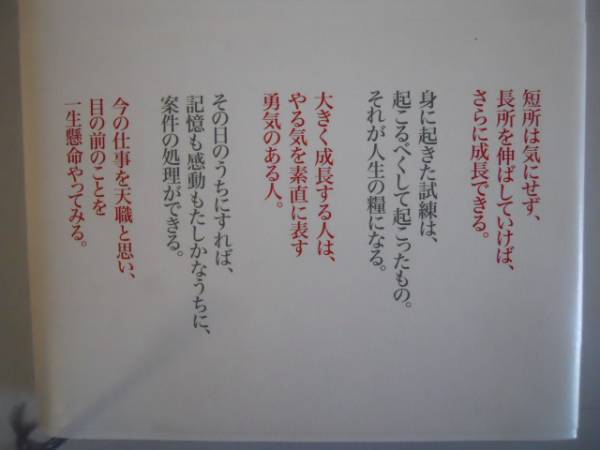 短所は気にせず、
長所を伸ばしていけば、
さらに成長できる。
身に起きた試練は、
起こるべくして起こったもの。
それが人生の糧になる。
大きく成長する人は、
やる気を素直に表す
勇気のある人。
その日のうちにすれば、
記憶も感動もたしかなうちに、
案件の処理ができる。
今の仕事を天職と思い、
目の前のことを
一生懸命やってみる。